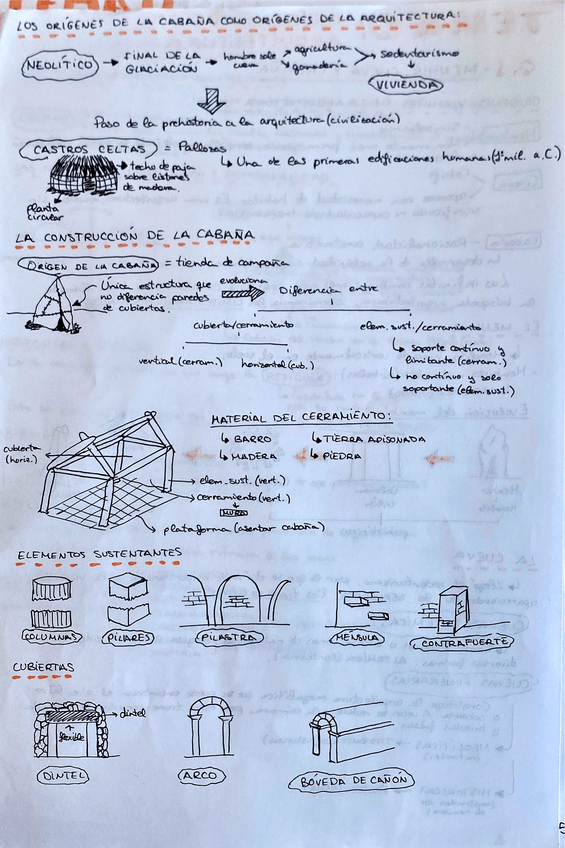 LOS ORÍGENES DE LA CABAÑA COMO ORÍGENES DE LA ARQUITECTURA:
NEOLÍTICO → FINAL DE LA GLACIACIÓN → hombre sale cueva → agricultura → sedentarismo
ganadería
VIVIENDA
Paso de la prehistoria a la arquitectura (civilización)
CASTROS CELTAS = Pallozas
↳ Una de las primeras edificaciones humanas (1º mil. a.C.)
→ techo de paja
sobre listones
de madera.
planta
circular
LA CONSTRUCCIÓN DE LA CABAÑA
ORIGEN DE LA CABAÑA = tienda de campaña
Única estructura que
no diferencia paredes
de cubiertas.
evoluciona
Diferencia entre
cubierta/cerramiento
elem. sust./cerramiento
vertical (cerram.)
horizontal (cub.)
↳ soporte contínuo y
limitante (cerram.)
↳ no contínuo y solo
soportante (elem. sust.)
MATERIAL DEL CERRAMIENTO:
↳ BARRO ↳ TIERRA APISONADA
↳ MADERA ↳ PIEDRA
cubierta
(horiz.)
→ elem. sust. (vert.)
→ cerramiento (vert.)
MURO
→ plataforma (asentar cabaña)
ELEMENTOS SUSTENTANTES
COLUMNAS PILARES PILASTRA MÉNSULA CONTRAFUERTE
CUBIERTAS
→ dintel
flexible
DINTEL ARCO BÓVEDA DE CAÑÓN
5